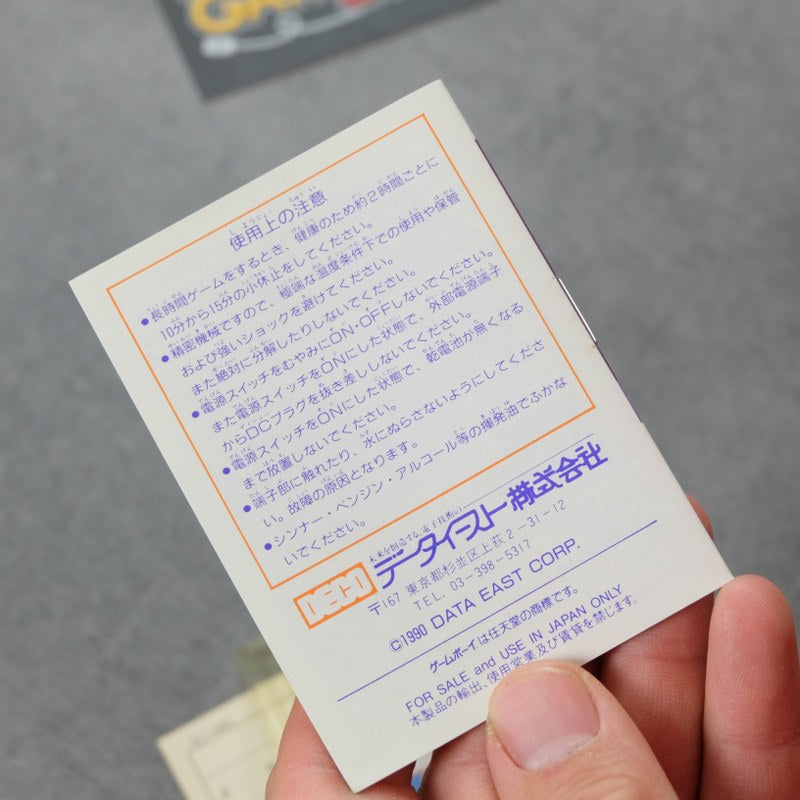 GAM
使用上の注意
●長時間ゲームをするとき、健康のため約2時間ごとに
10分から15分の小休止をしてください。
●精密機械ですので、極端な温度条件下での使用や保管
および強いショックを避けてください。
また絶対に分解したりしないでください。
●電源スイッチをむやみにON・OFFしないでください。
また電源スイッチをONにした状態で、外部電源端子
からDCプラグを抜き差ししないでください。
●電源スイッチをONにした状態で、乾電池が無くなる
まで放置しないでください。
●端子部に触れたり、水にぬらさないようにしてくださ
い。故障の原因となります。
●シンナー・ベンジン・アルコール等の揮発油でふかな
いでください。
未来を創造する電子技術の
DECO データイースト株式会社
〒167 東京都杉並区上荻2-31-12
TEL. 03-398-5317
©1990 DATA EAST CORP.
ゲームボーイは任天堂の商標です。
FOR SALE and USE IN JAPAN ONLY
本製品の輸出、使用営業及び賃貸を禁じます。